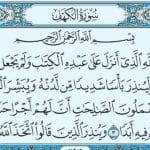 سُورَةُ الْكَهْفِ
بِسْمِ اللَّهِ الرَّحْمَٰنِ الرَّحِيمِ
الَّذِي أَنزَلَ عَلَىٰ عَبْدِهِ الْكِتَٰبَ وَلَمْ يَجْعَل
لِّيُنذِرَ بَأْسًا شَدِيدًا مِّن لَّدُنْهُ وَيُبَشِّرَ
الصَّٰلِحَٰتِ أَنَّ لَهُمْ أَجْرًا
فِيهِ أَبَدًا ٣ وَيُنذِرَ الَّذِينَ قَالُوا اتَّخَذَ اللَّهُ